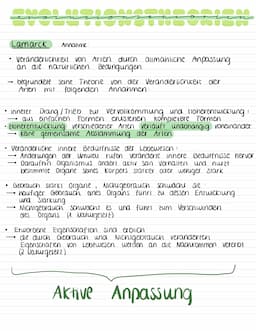 EVOLUTIONSTHEORIEN
Lamarck Annahme
• Veränderlichkeit von Arten durch allmähliche Anpassung
an die natürlichen Bedingungen
→ begründet seine Theorie von der Veränderlichkeit der
Arten mit folgenden Annahmen
• innerer Drang / Trieb zur Vervollkommnung und Höherentwicklung:
→ aus einfachen Formen entstehen komplexere Formen
• Höherentwicklung verschiedener Arten verläuft unabhängig voneinander
→ keine gemeinsame Abstammung der Arten
• Veränderliche innere Bedürfnisse der Lebewesen:
→ Änderungen der Umwelt rufen veränderte innere Bedürfnisse hervor
→ Daraufhin Organismen ändern sein Verhalten und nutzt
bestimmte Organe seines Körpers stärker oder weniger stark
• Gebrauch stärkt Organe, Nichtgebrauch schwächt sie
→ häufiger Gebrauch eines Organs führt zu dessen Entwicklung
und Stärkung
→ Nichtgebrauch schwächt es und führt zum Verschwinden
des Organs (1. Naturgesetz)
• Erworbene Eigenschaften sind erblich
→ die durch Gebrauch und Nichtgebrauch veränderten
Eigenschaften von Lebewesen werden an die Nachkommen vererbt
(2. Naturgesetz)
Aktive Anpassung